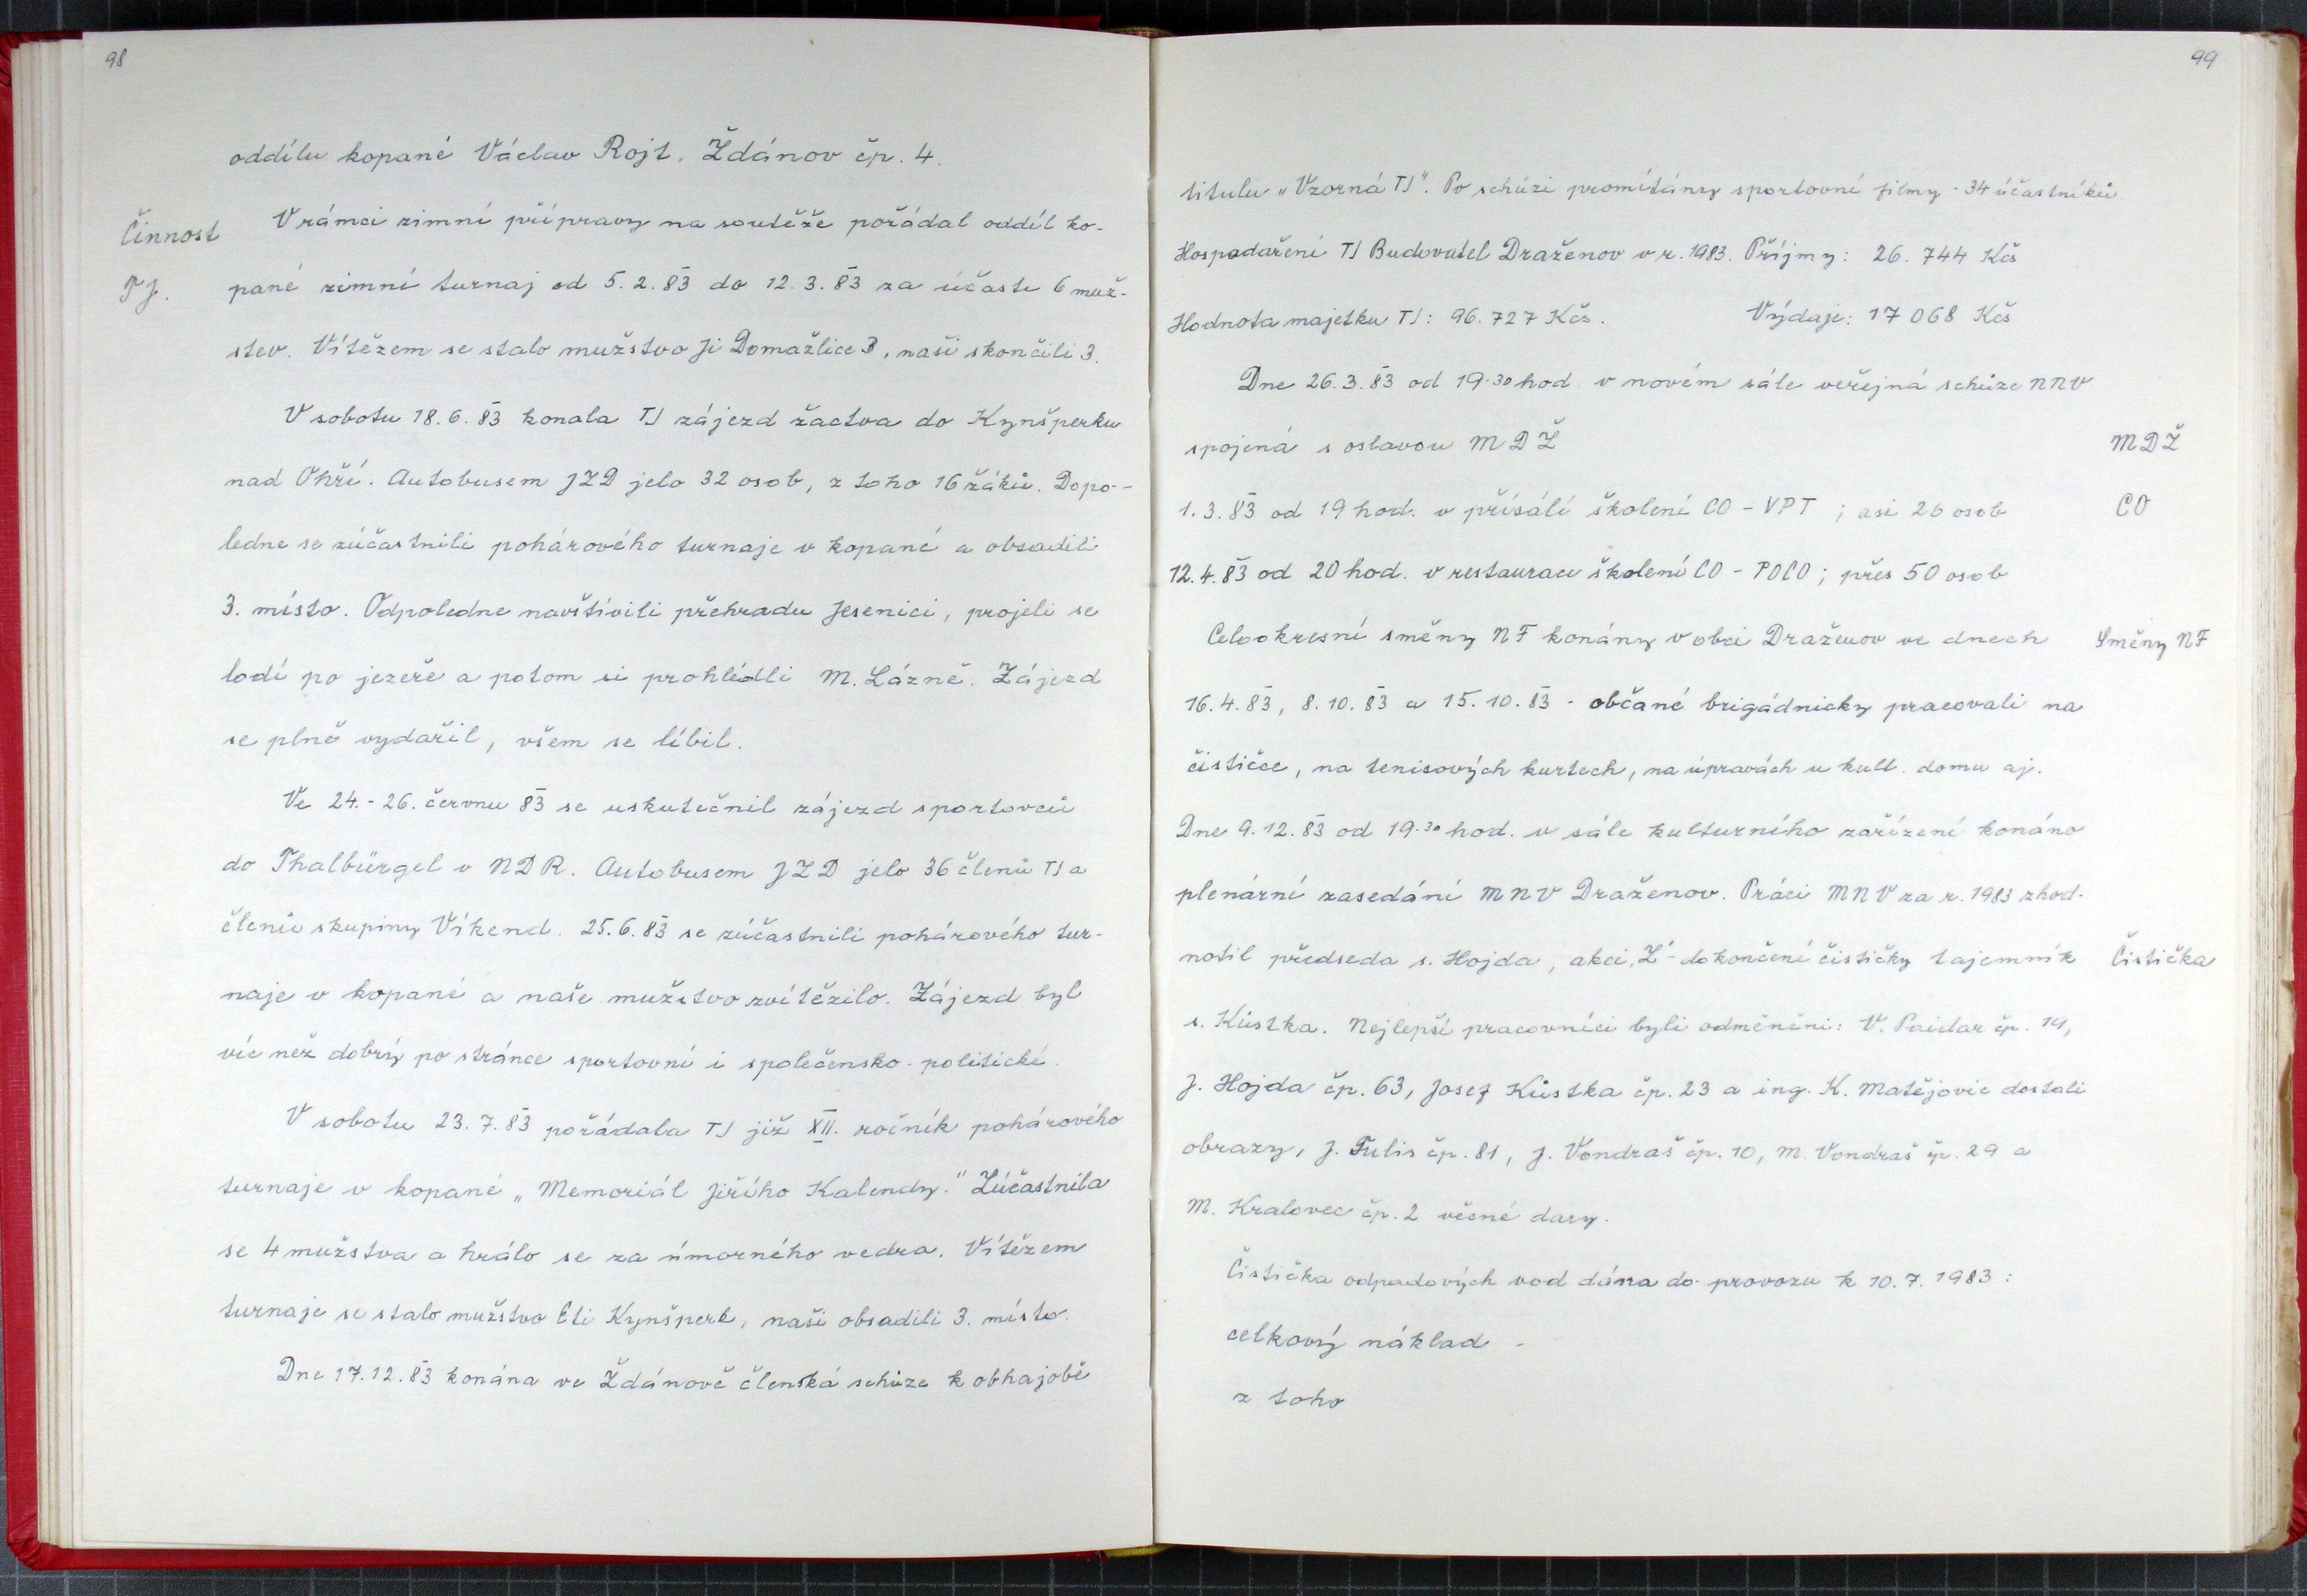 98
oddílu kopané Václav Rojt, Ždánov čp. 4.
Činnost
TJ.
V rámci zimní přípravy na soutěže pořádal oddíl ko-
pané zimní turnaj od 5.2.83 do 12.3.83 za účasti 6 muž-
stev. Vítězem se stalo mužstvo Ji Domažlice B, naši skončili 3.
V sobotu 18.6.83 konala TJ zájezd žactva do Kynšperku
nad Ohří. Autobusem JZD jelo 32 osob, z toho 16 žáků. Dopo-
ledne se zúčastnili pohárového turnaje v kopané a obsadili
3. místo. Odpoledne navštívili přehradu Jesenici, projeli se
lodí po jezeře a potom si prohlédli M. Lázně. Zájezd
se plně vydařil, všem se líbil.
Ve 24.-26. červnu 83 se uskutečnil zájezd sportovců
do Thalbürgel v NDR. Autobusem JZD jelo 36 členů TJ a
členů skupiny Víkend. 25.6.83 se zúčastnili pohárového tur-
naje v kopané a naše mužstvo zvítězilo. Zájezd byl
víc než dobrý po stránce sportovní i společensko-politické.
V sobotu 23.7.83 pořádala TJ již XII. ročník pohárového
turnaje v kopané „Memoriál Jiřího Kalendy." Zúčastnila
se 4 mužstva a hrálo se za úmorného vedra. Vítězem
turnaje se stalo mužstvo Eti Kynšperk, naši obsadili 3. místo.
Dne 17.12.83 konána ve Ždánově členská schůze k obhajobě
99
titulu „Vzorná TJ". Po schůzi promítány sportovní filmy - 34 účastníků
Hospadaření TJ Budovatel Draženov v r. 1983. Příjmy: 26.744 Kčs
Hodnota majetku TJ: 96.727 Kčs. Výdaje: 17 068 Kčs
Dne 26.3.83 od 19.30 hod. v novém sále veřejná schůze MNV
spojená s oslavou MDŽ
MDŽ
1.3.83 od 19 hod. v přísálí školení CO - VPT ; asi 26 osob
CO
12.4.83 od 20 hod. v restauraci školení CO - POCO ; přes 50 osob
Celookresní směny NF konány v obci Draženov ve dnech
Směny NF
16.4.83, 8.10.83 a 15.10.83 - občané brigádnicky pracovali na
čističce, na tenisových kurtech, na úpravách u kult. domu aj.
Dne 9.12.83 od 19.30 hod. v sále kulturního zařízení konáno
plenární zasedání MNV Draženov. Práci MNV za r. 1983 zhod-
notil předseda s. Hojda, akci „Z" - dokončení čističky tajemník
Čistička
s. Kůstka. Nejlepší pracovníci byli odměněni: V. Paidar čp. 19,
J. Hojda čp. 63, Josef Kůstka čp. 23 a ing. K. Matějovic dostali
obrazy, J. Tulis čp. 81, J. Vondraš čp. 10, M. Vondraš čp. 29 a
M. Kralovec čp. 2 věcné dary.
Čistička odpadových vod dána do provozu k 10.7.1983:
celkový náklad -
z toho